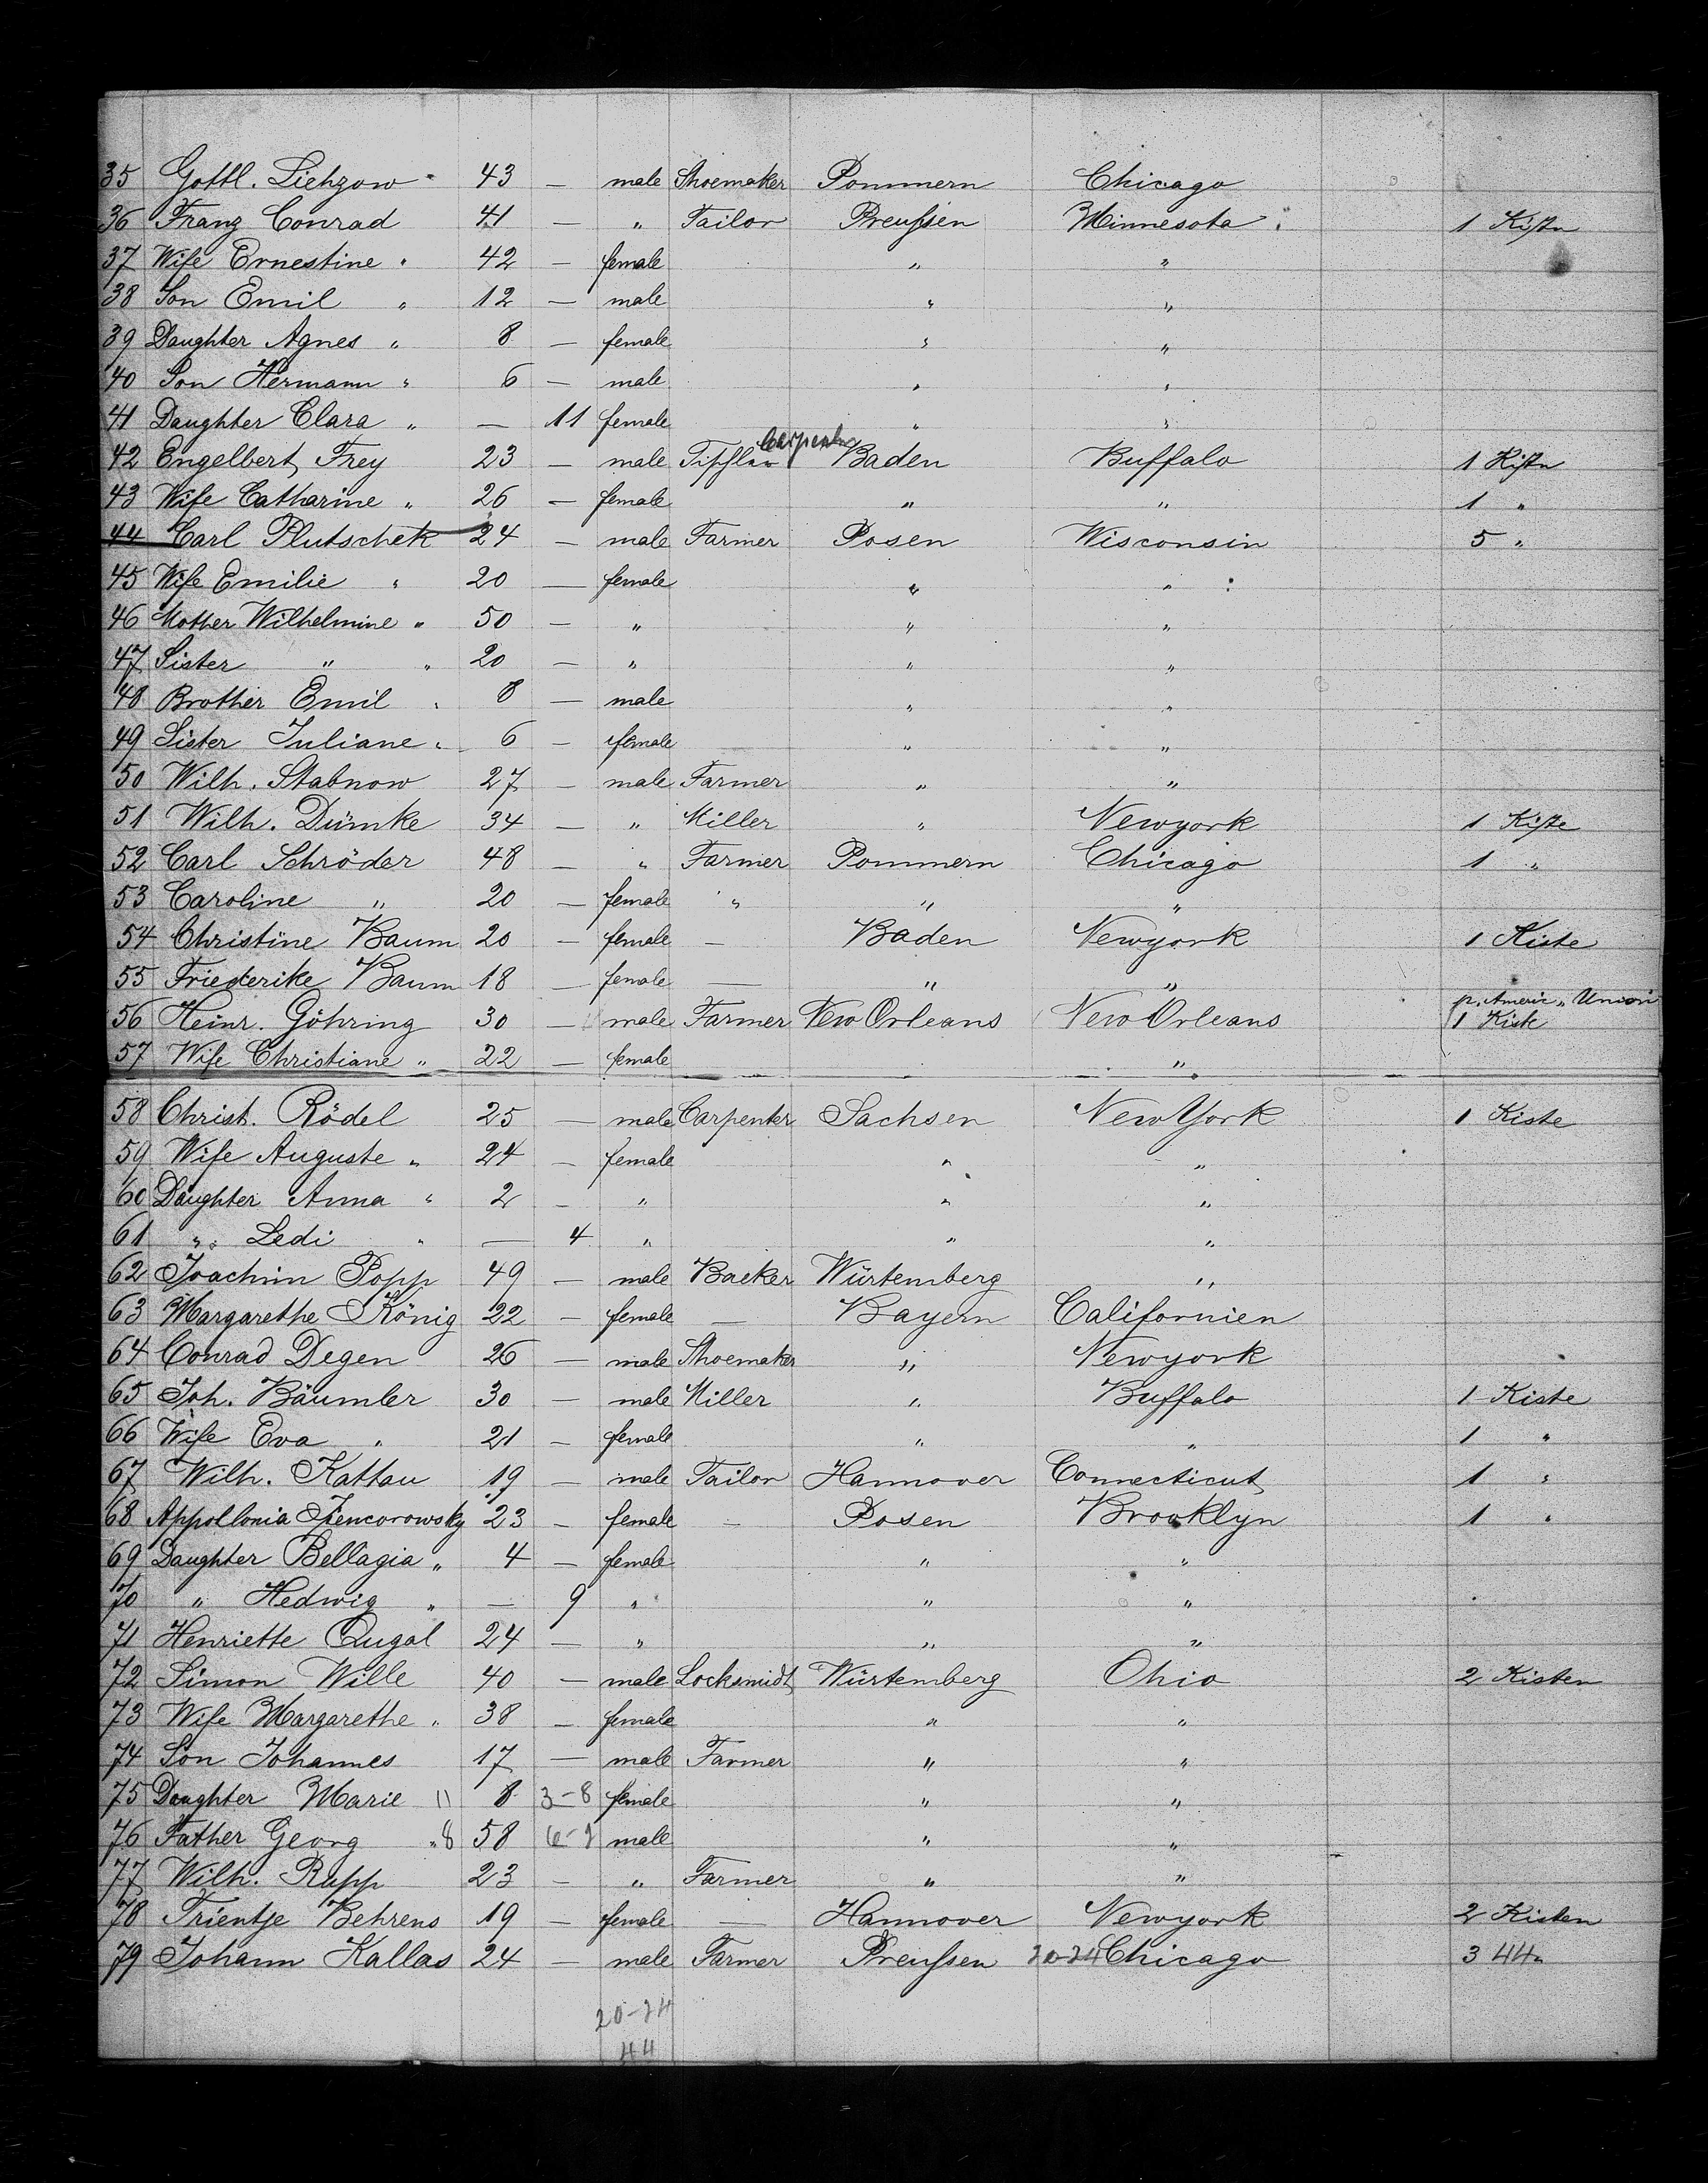 35 Gottl. Liehzow 43 — male Shoemaker Pommern Chicago
36 Franz Conrad 41 — " Tailor Preußen Minnesota 1 Kiste
37 Wife Ernestine " 42 — female " "
38 Son Emil " 12 — male " "
39 Daughter Agnes " 8 — female " "
40 Son Hermann " 6 — male " "
41 Daughter Clara " — 11 female " "
Carpenter
42 Engelbert Frey 23 — male Tischler Baden Buffalo 1 Kiste
43 Wife Catharine " 26 — female " " 1 "
44 Carl Plutschek 24 — male Farmer Posen Wisconsin 5 "
45 Wife Emilie " 20 — female " "
46 Mother Wilhelmine " 50 — " " "
47 Sister " " 20 — " " "
48 Brother Emil " 8 — male " "
49 Sister Juliane " 6 — female " "
50 Wilh. Stabnow 27 — male Farmer " "
51 Wilh. Dümke 34 — " Miller " Newyork 1 Kiste
52 Carl Schröder 48 — " Farmer Pommern Chicago 1 "
53 Caroline " 20 — female " " "
54 Christine Baum 20 — female — Baden Newyork 1 Kiste
55 Friederike Baum 18 — female — " "
p. Americ. Union
56 Heinr. Göhring 30 — male Farmer New Orleans New Orleans 1 Kiste
57 Wife Christiane " 22 — female "
58 Christ. Rödel 25 — male Carpenter Sachsen New York 1 Kiste
59 Wife Auguste " 24 — female " "
60 Daughter Anna " 2 — " " "
61 " Ledi " — 4 " " "
62 Joachim Popp 49 — male Backer Würtemberg "
63 Margarethe König 22 — female — Bayern Californien
64 Conrad Degen 26 — male Shoemaker " Newyork
65 Joh. Bäumler 30 — male Miller " Buffalo 1 Kiste
66 Wife Eva " 21 — female " " 1 "
67 Wilh. Kattau 19 — male Tailor Hannover Connecticut 1 "
68 Appollonia 23 — female — Posen Brooklyn 1 "
69 Daughter Bellagia " 4 — female " "
70 " Hedwig " — 9 " " "
71 Henriette Qugal 24 — " " "
72 Simon Wille 40 — male Locksmidt Würtemberg Ohio 2 Kisten
73 Wife Margarethe " 38 — female " "
74 Son Johannes 17 — male Farmer " "
75 Daughter Marie " 8 3-8 female " "
76 Father Georg " 8 58 male " "
77 Wilh. Rupp 23 — " Farmer " "
78 Trientje Behrens 19 — female — Hannover Newyork 2 Kisten
79 Johann Kallas 24 — male Farmer Preußen 20-24 Chicago 3 44
20-24
44